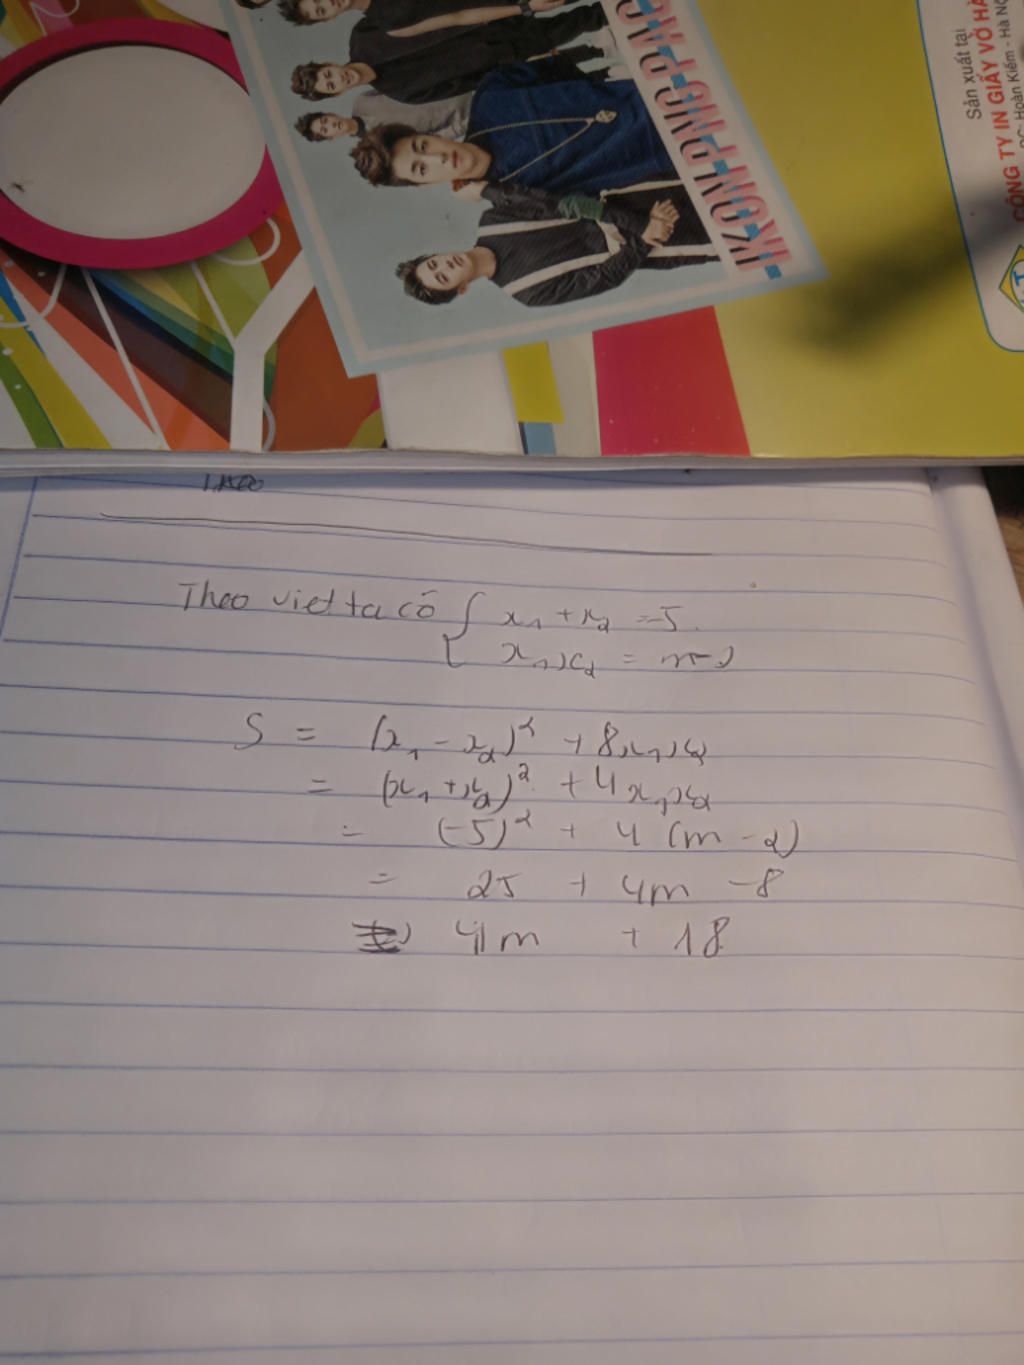 IKON·PNG·PAC
Sản xuất tại
CÔNG TY IN GIẤY VỞ HÀ
ĐC: Hoàn Kiếm - Hà Nộ
Theo
Theo viet ta có { x₁ + x₂ = -5.
x₁x₂ = m-2
S = (x₁ - x₂)² + 8x₁x₂
= (x₁ + x₂)² + 4x₁x₂
= (-5)² + 4 (m - 2)
= 25 + 4m - 8
4m + 18